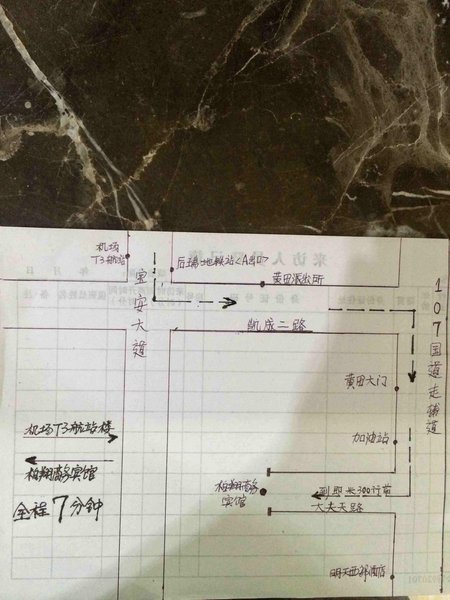 机场
T3航站
后瑞地铁站<A出口>
黄田派出所
来访人
年 月 日
宝安大道
凯成二路
107国道走辅道
黄田大门
加油站
机场T3航站楼
柏翔商务宾馆
全程7分钟
柏翔商务
宾馆
大夫天路
明天西部酒店